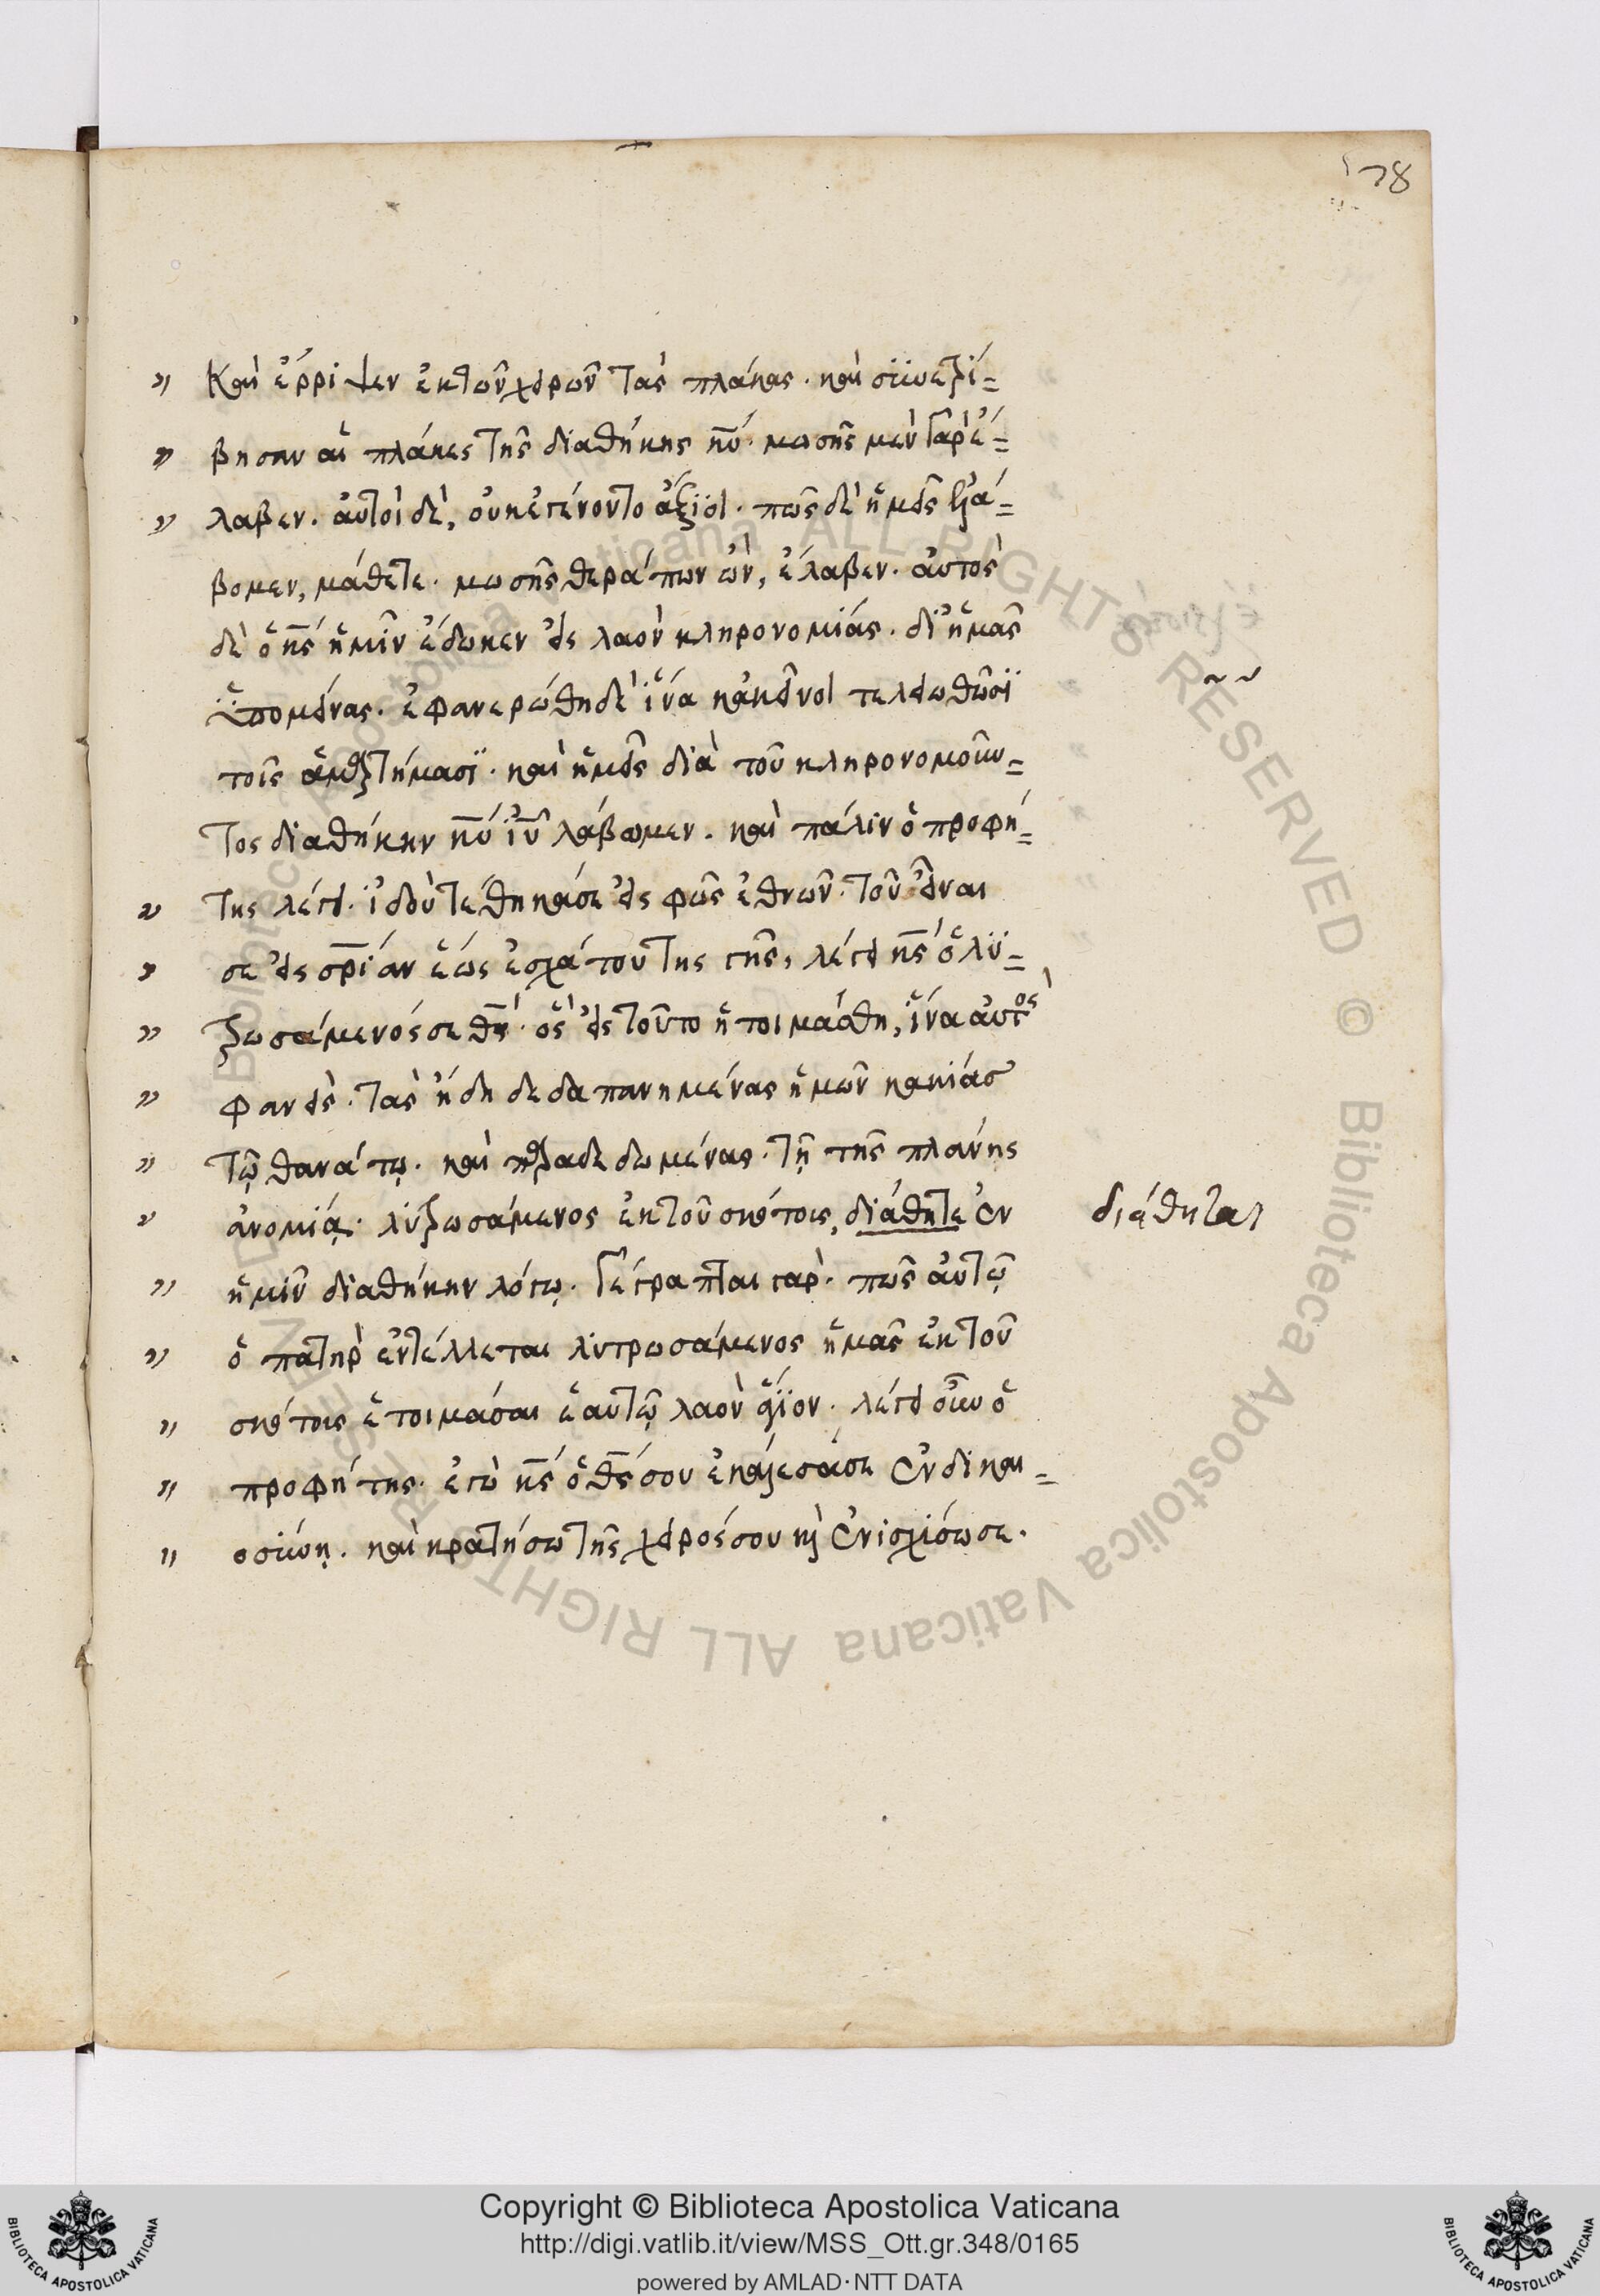 78
" Καὶ ἔρριψεν ἐκ τῶν χειρῶν τὰς πλάκας. καὶ συνετρί=
" βησαν αἱ πλάκες τῆς διαθήκης κ̅υ̅. μωσῆς μὲν γὰρ ἔ=
" λαβεν. αὐτοὶ δὲ, οὐκ ἐγένοντο ἄξϊοι. πῶς δὲ ἡμεῖς ἐλά=
βομεν, μάθετε. μωσῆς θεράπων ὢν, ἔλαβεν. αὐτὸς
δὲ ὁ κ̅ς̅ ἡμῖν ἔδωκεν εἰς λαὸν κληρονομίας. δι' ἡμᾶς
ὑπομείνας. ἐφανερώθη δὲ ἵνα κἀκεῖνοι τελειωθῶσϊ
τοῖς ἁμαρτήμασϊ. καὶ ἡμεῖς διὰ τοῦ κληρονομοῦν=
τος διαθήκην κ̅υ̅ ἰ̅υ̅ λάβωμεν. καὶ πάλιν ὁ προφή=
" της λέγει. ἰδοὺ τέθηκά σε εἰς φῶς ἐθνῶν. τοῦ εἶναι
" σε εἰς σ̅ρ̅ίαν ἕως ἐσχάτου της γῆς, λέγει κ̅ς̅ ὁ λυ=
" τρωσάμενός σε θ̅ς̅. ὃς εἰς τοῦτο ἡτοιμάσθη, ἵνα αὐτὸς
" φανεὶς. τὰς ἤδη δεδαπανημένας ἡμῶν καρδίας
" τῷ θανάτῳ. καὶ παραδεδωμένας. τῇ τῆς πλάνης
" ἀνομίᾳ. λυτρωσάμενος ἐκ τοῦ σκότους, διάθητε ἐν διάθηται
" ἡμῖν διαθήκην λόγῳ. Γέγραπται γὰρ. πῶς αὐτῷ
" ὁ πατὴρ ἐντέλλεται λυτρωσάμενος ἡμᾶς ἐκ τοῦ
" σκότους ἑτοιμάσαι ἑαυτῷ λαὸν ἅγϊον. λέγει οὖν ὁ
" προφήτης. ἐγὼ κ̅ς̅ ὁ θ̅ς̅ σου ἐκάλεσά σε ἐν δικαι=
" οσύνῃ. καὶ κρατήσω τῆς χειρός σου κ̀ ἐνισχύσω σε.
Copyright © Biblioteca Apostolica Vaticana
http://digi.vatlib.it/view/MSS_Ott.gr.348/0165
powered by AMLAD·NTT DATA